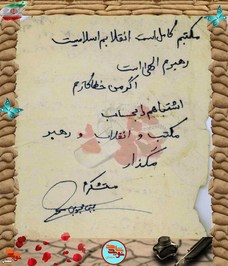 مکتبم کامل است انقلابم اسلامیت
رهبرم الهی است
اگر من خطا کارم
اشتباهم را بحساب
مکتب و انقلاب و رهبر
مگذار
متشکرم